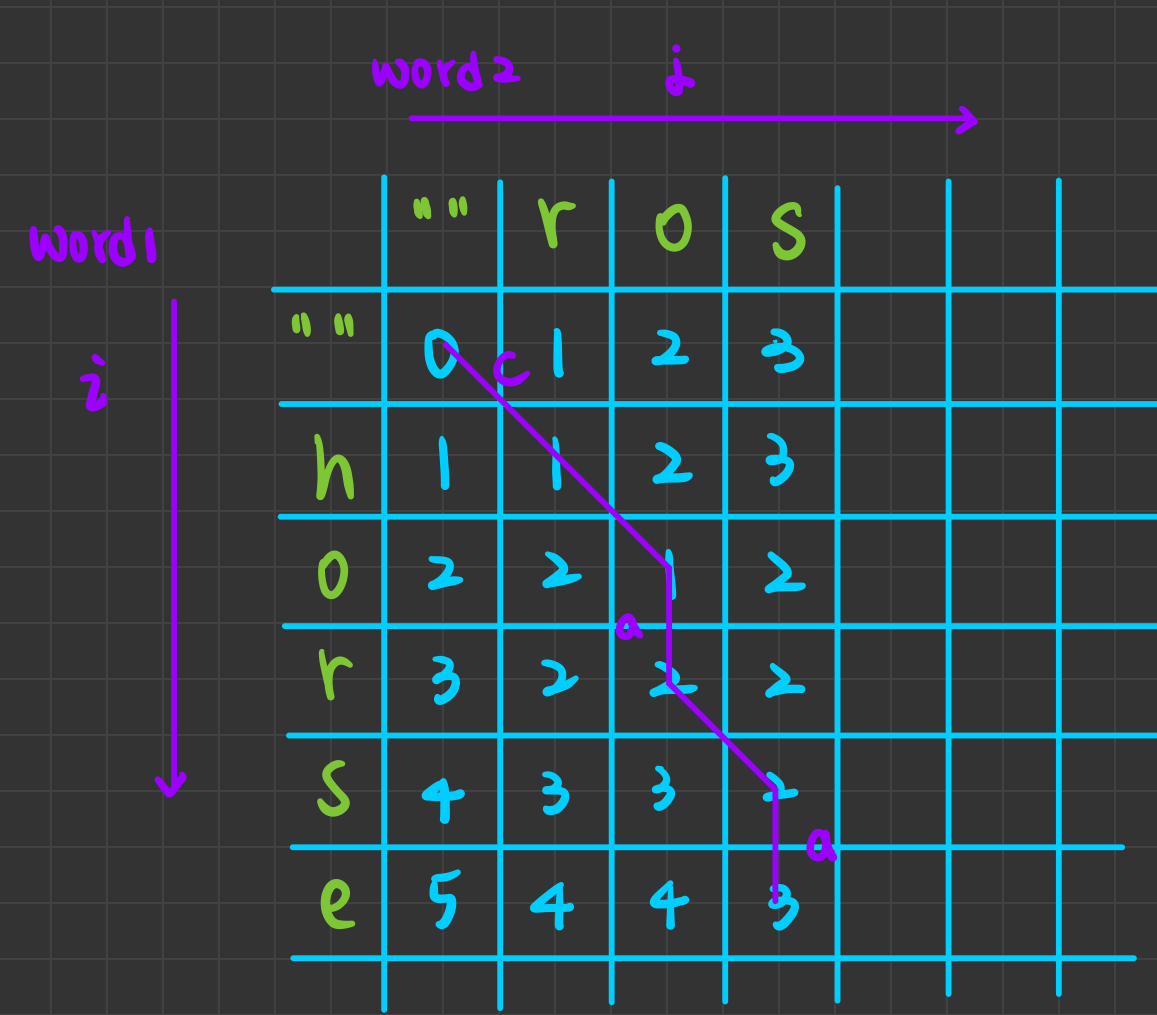 word2 j
word1
"" r o s
"" 0 1 2 3
c
i
h 1 1 2 3
o 2 2 1 2
a
r 3 2 2 2
s 4 3 3 2
a
e 5 4 4 3